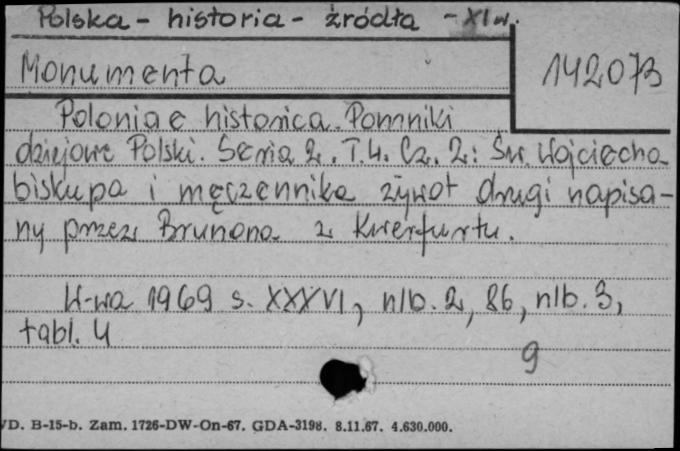 Polska - historia - źródła - XI w.
Monumenta
142073
Poloniae historica. Pomniki
dziejowe Polski. Seria 2. T.4. Cz. 2: Św. Wojciecha
biskupa i męczennika żywot drugi napisa-
ny przez Brunona z Kwerfurtu.
W-wa 1969 s. XXXVI, nlb. 2, 86, nlb. 3,
tabl. 4
9
VD. B-15-b. Zam. 1726-DW-On-67. GDA-3198. 8.11.67. 4.630.000.